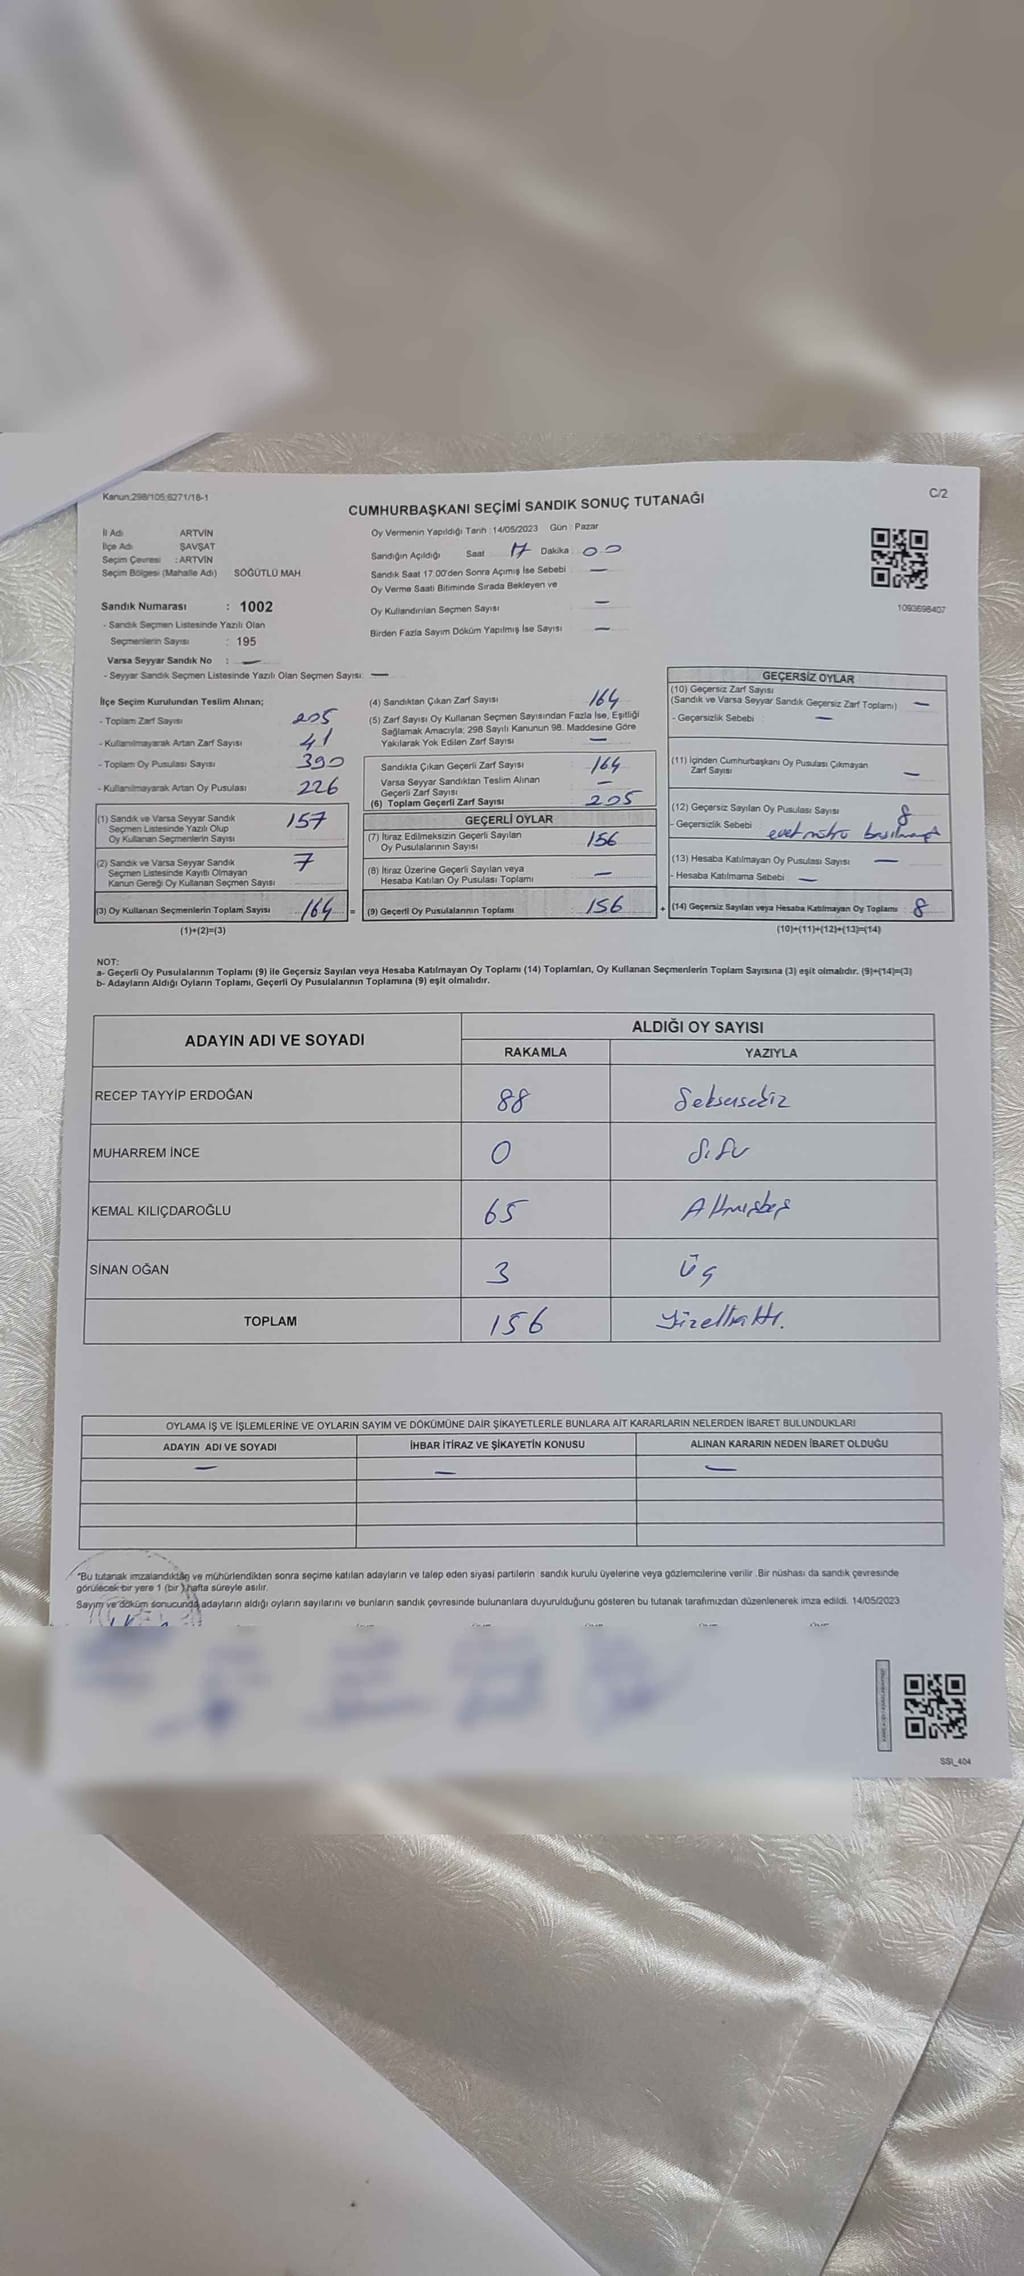 Kanun:298/105;6271/18-1
C/2
CUMHURBAŞKANI SEÇİMİ SANDIK SONUÇ TUTANAĞI
İl Adı ARTVİN
İlçe Adı ŞAVŞAT
Seçim Çevresi : ARTVİN
Seçim Bölgesi (Mahalle Adı) SÖĞÜTLÜ MAH.
Sandık Numarası : 1002
- Sandık Seçmen Listesinde Yazılı Olan
Seçmenlerin Sayısı : 195
Varsa Seyyar Sandık No : —
- Seyyar Sandık Seçmen Listesinde Yazılı Olan Seçmen Sayısı: —
Oy Vermenin Yapıldığı Tarih : 14/05/2023 Gün : Pazar
Sandığın Açıldığı Saat 17 Dakika : 00
Sandık Saat 17.00'den Sonra Açımış İse Sebebi : —
Oy Verme Saati Bitiminde Sırada Bekleyen ve
Oy Kullandırılan Seçmen Sayısı —
Birden Fazla Sayım Döküm Yapılmış İse Sayısı : —
1093698407
İlçe Seçim Kurulundan Teslim Alınan;
- Toplam Zarf Sayısı 205
- Kullanılmayarak Artan Zarf Sayısı 41
- Toplam Oy Pusulası Sayısı 390
- Kullanılmayarak Artan Oy Pusulası 226
(1) Sandık ve Varsa Seyyar Sandık
Seçmen Listesinde Yazılı Olup
Oy Kullanan Seçmenlerin Sayısı 157
(2) Sandık ve Varsa Seyyar Sandık
Seçmen Listesinde Kayıtlı Olmayan
Kanun Gereği Oy Kullanan Seçmen Sayısı 7
(3) Oy Kullanan Seçmenlerin Toplam Sayısı 164 =
(1)+(2)=(3)
(4) Sandıktan Çıkan Zarf Sayısı 164
(5) Zarf Sayısı Oy Kullanan Seçmen Sayısından Fazla İse, Eşitliği
Sağlamak Amacıyla; 298 Sayılı Kanunun 98. Maddesine Göre
Yakılarak Yok Edilen Zarf Sayısı —
Sandıkta Çıkan Geçerli Zarf Sayısı 164
Varsa Seyyar Sandıktan Teslim Alınan
Geçerli Zarf Sayısı —
(6) Toplam Geçerli Zarf Sayısı 205
GEÇERLİ OYLAR
(7) İtiraz Edilmeksizin Geçerli Sayılan
Oy Pusulalarının Sayısı 156
(8) İtiraz Üzerine Geçerli Sayılan veya
Hesaba Katılan Oy Pusulası Toplamı —
(9) Geçerli Oy Pusulalarının Toplamı 156 +
GEÇERSİZ OYLAR
(10) Geçersiz Zarf Sayısı
(Sandık ve Varsa Seyyar Sandık Geçersiz Zarf Toplamı) —
- Geçersizlik Sebebi : —
(11) İçinden Cumhurbaşkanı Oy Pusulası Çıkmayan
Zarf Sayısı —
(12) Geçersiz Sayılan Oy Pusulası Sayısı 8
- Geçersizlik Sebebi : evet
(13) Hesaba Katılmayan Oy Pusulası Sayısı —
- Hesaba Katılmama Sebebi : —
(14) Geçersiz Sayılan veya Hesaba Katılmayan Oy Toplamı 8
(10)+(11)+(12)+(13)=(14)
NOT:
a- Geçerli Oy Pusulalarının Toplamı (9) ile Geçersiz Sayılan veya Hesaba Katılmayan Oy Toplamı (14) Toplamları, Oy Kullanan Seçmenlerin Toplam Sayısına (3) eşit olmalıdır. (9)+(14)=(3)
b- Adayların Aldığı Oyların Toplamı, Geçerli Oy Pusulalarının Toplamına (9) eşit olmalıdır.
ADAYIN ADI VE SOYADI ALDIĞI OY SAYISI
RAKAMLA YAZIYLA
RECEP TAYYİP ERDOĞAN 88 Seksensekiz
MUHARREM İNCE 0 Sıfır
KEMAL KILIÇDAROĞLU 65 Altmışbeş
SİNAN OĞAN 3 Üç
TOPLAM 156 Yüzellialtı.
OYLAMA İŞ VE İŞLEMLERİNE VE OYLARIN SAYIM VE DÖKÜMÜNE DAİR ŞİKAYETLERLE BUNLARA AİT KARARLARIN NELERDEN İBARET BULUNDUKLARI
ADAYIN ADI VE SOYADI İHBAR İTİRAZ VE ŞİKAYETİN KONUSU ALINAN KARARIN NEDEN İBARET OLDUĞU
— — —
"Bu tutanak imzalandıktan ve mühürlendikten sonra seçime katılan adayların ve talep eden siyasi partilerin sandık kurulu üyelerine veya gözlemcilerine verilir .Bir nüshası da sandık çevresinde
görülecek bir yere 1 (bir ) hafta süreyle asılır.
Sayım ve döküm sonucunda adayların aldığı oyların sayılarını ve bunların sandık çevresinde bulunanlara duyurulduğunu gösteren bu tutanak tarafımızdan düzenlenerek imza edildi. 14/05/2023
SSI_404